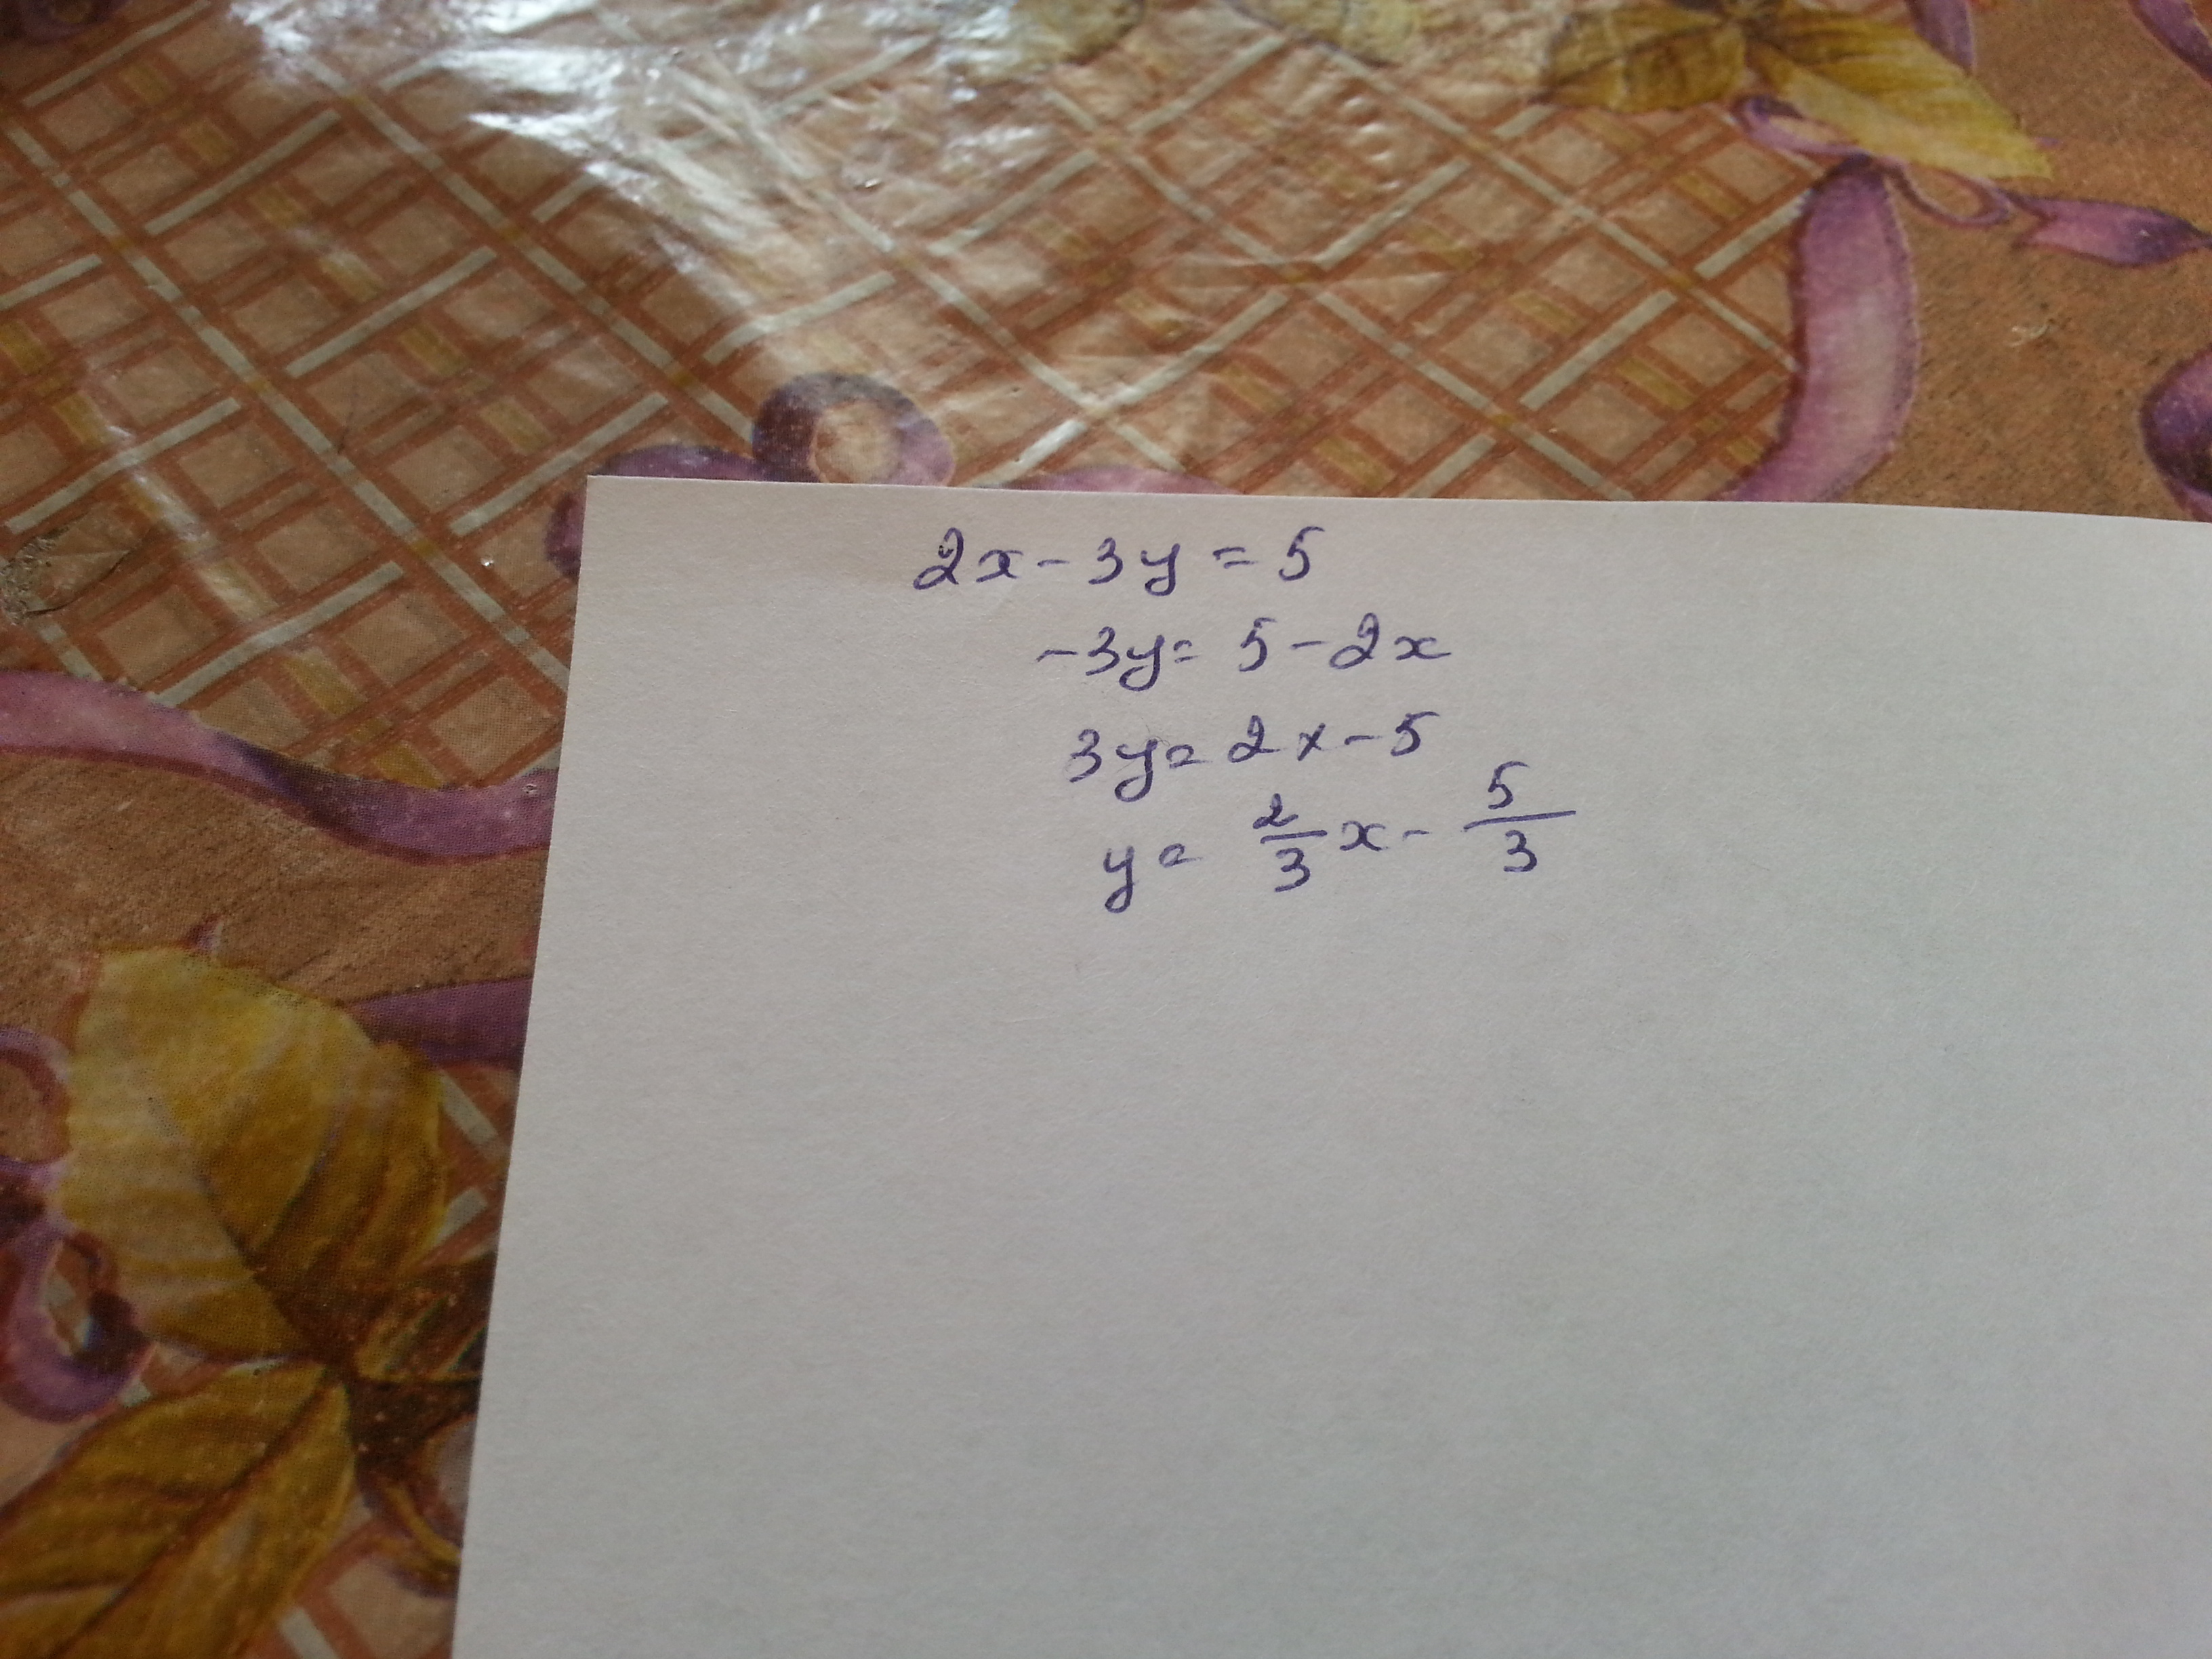 2x - 3y = 5
-3y = 5 - 2x
3y = 2x - 5
y = 2/3 x - 5/3